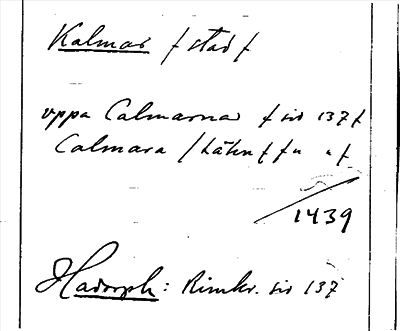 Kalmar / stad /
uppa Calmarna / sid 137 /
Calmara / Lähn / / " " /
1439
Hadorph: Rimkr. sid 137